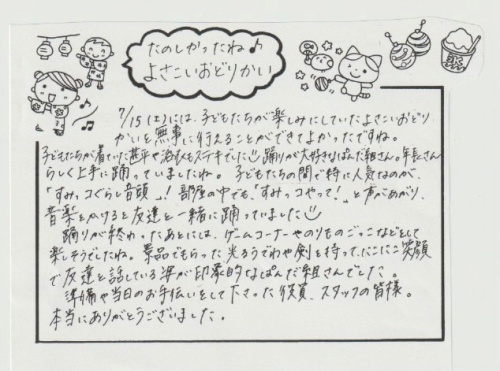 たのしかったね♪
よさこいおどりかい
7/15(土)には、子どもたちが楽しみにしていたよさこいおどり
かいを無事に行えることができてよかったですね。
子どもたちが着ていた甚平や浴衣もステキでした 踊りが大好きなぱんだ組さん。年長さん
らしく上手に踊っていましたね。子どもたちの間で特に人気なのが、
「すみっコぐらし音頭」!部屋の中でも「すみっコやって!」と声があがり、
音楽をかけると友達と一緒に踊っていました
踊りが終わったあとには、ゲームコーナーやのりものごっこなどをして
楽しそうでしたね。景品でもらった光るうでわや剣を持って、にこにこ笑顔
で友達と話している姿が印象的なぱんだ組さんでした。
準備や当日のお手伝いをして下さった役員、スタッフの皆様。
本当にありがとうございました。